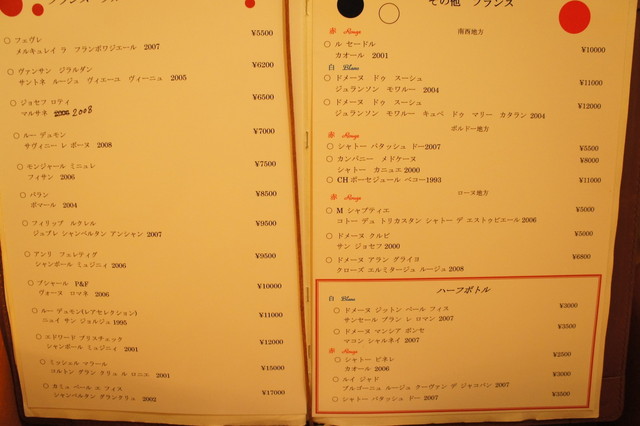 フェヴレ ¥5500
メルキュレイ ラ フランボワジエール 2007
ヴァンサン ジラルダン ¥6200
サントネ ルージュ ヴィエーユ ヴィーニュ 2005
ジョセフ ロティ ¥6500
マルサネ 2008
ルー デュモン ¥7000
サヴィニー レ ボーヌ 2008
モンジャール ミニュレ ¥7500
フィサン 2006
バラン ¥8500
ポマール 2004
フィリップ ルクレル ¥9500
ジュブレ シャンベルタン アンシャン 2007
アンリ フェレティグ ¥9500
シャンボール ミュジニィ 2006
ブシャール P&F ¥10000
ヴォーヌ ロマネ 2006
ルー デュモン(レアセレクション) ¥11000
ニュイ サン ジョルジュ 1995
エドワード ブリスチェック ¥12000
シャンボール ミュジニィ 2001
ミッシェル マラール ¥15000
コルトン グラン クリュ ル ロニエ 2001
カミュ ペール エ フィス ¥17000
シャンベルタン グランクリュ 2002
その他 フランス
南西地方
赤 Rouge
ル セードル ¥10000
カオール 2001
白 Blanc
ドメーヌ ドゥ スーシュ ¥11000
ジュランソン モワルー 2004
ドメーヌ ドゥ スーシュ ¥12000
ジュランソン モワルー キュベ ドゥ マリー カタラン 2004
ボルドー地方
赤 Rouge
シャトー パタッシュ ドー2007 ¥5500
カンパニー メドケーヌ ¥8000
シャトー カニュエ 2000
CH ボーセジュール ベコー1993 ¥11000
ローヌ地方
赤 Rouge
M シャプティエ ¥5000
コトー デュ トリカスタン シャトー デ エストゥビエール 2006
ドメーヌ クルビ ¥5000
サン ジョセフ 2000
ドメーヌ アラン グライヨ ¥6800
クローズ エルミタージュ ルージュ 2008
ハーフボトル
白 Blanc
ドメーヌ ジットン ペール フィス ¥3000
サンセール ブラン レ ロマン 2007
ドメーヌ マンシア ポンセ ¥3500
マコン シャルネイ 2007
赤 Rouge
シャトー ピネレ ¥2500
カオール 2006
ルイ ジャド ¥3000
ブルゴーニュ ルージュ クーヴァン デ ジャコバン 2007
シャトー パタッシュ ドー 2007 ¥3500